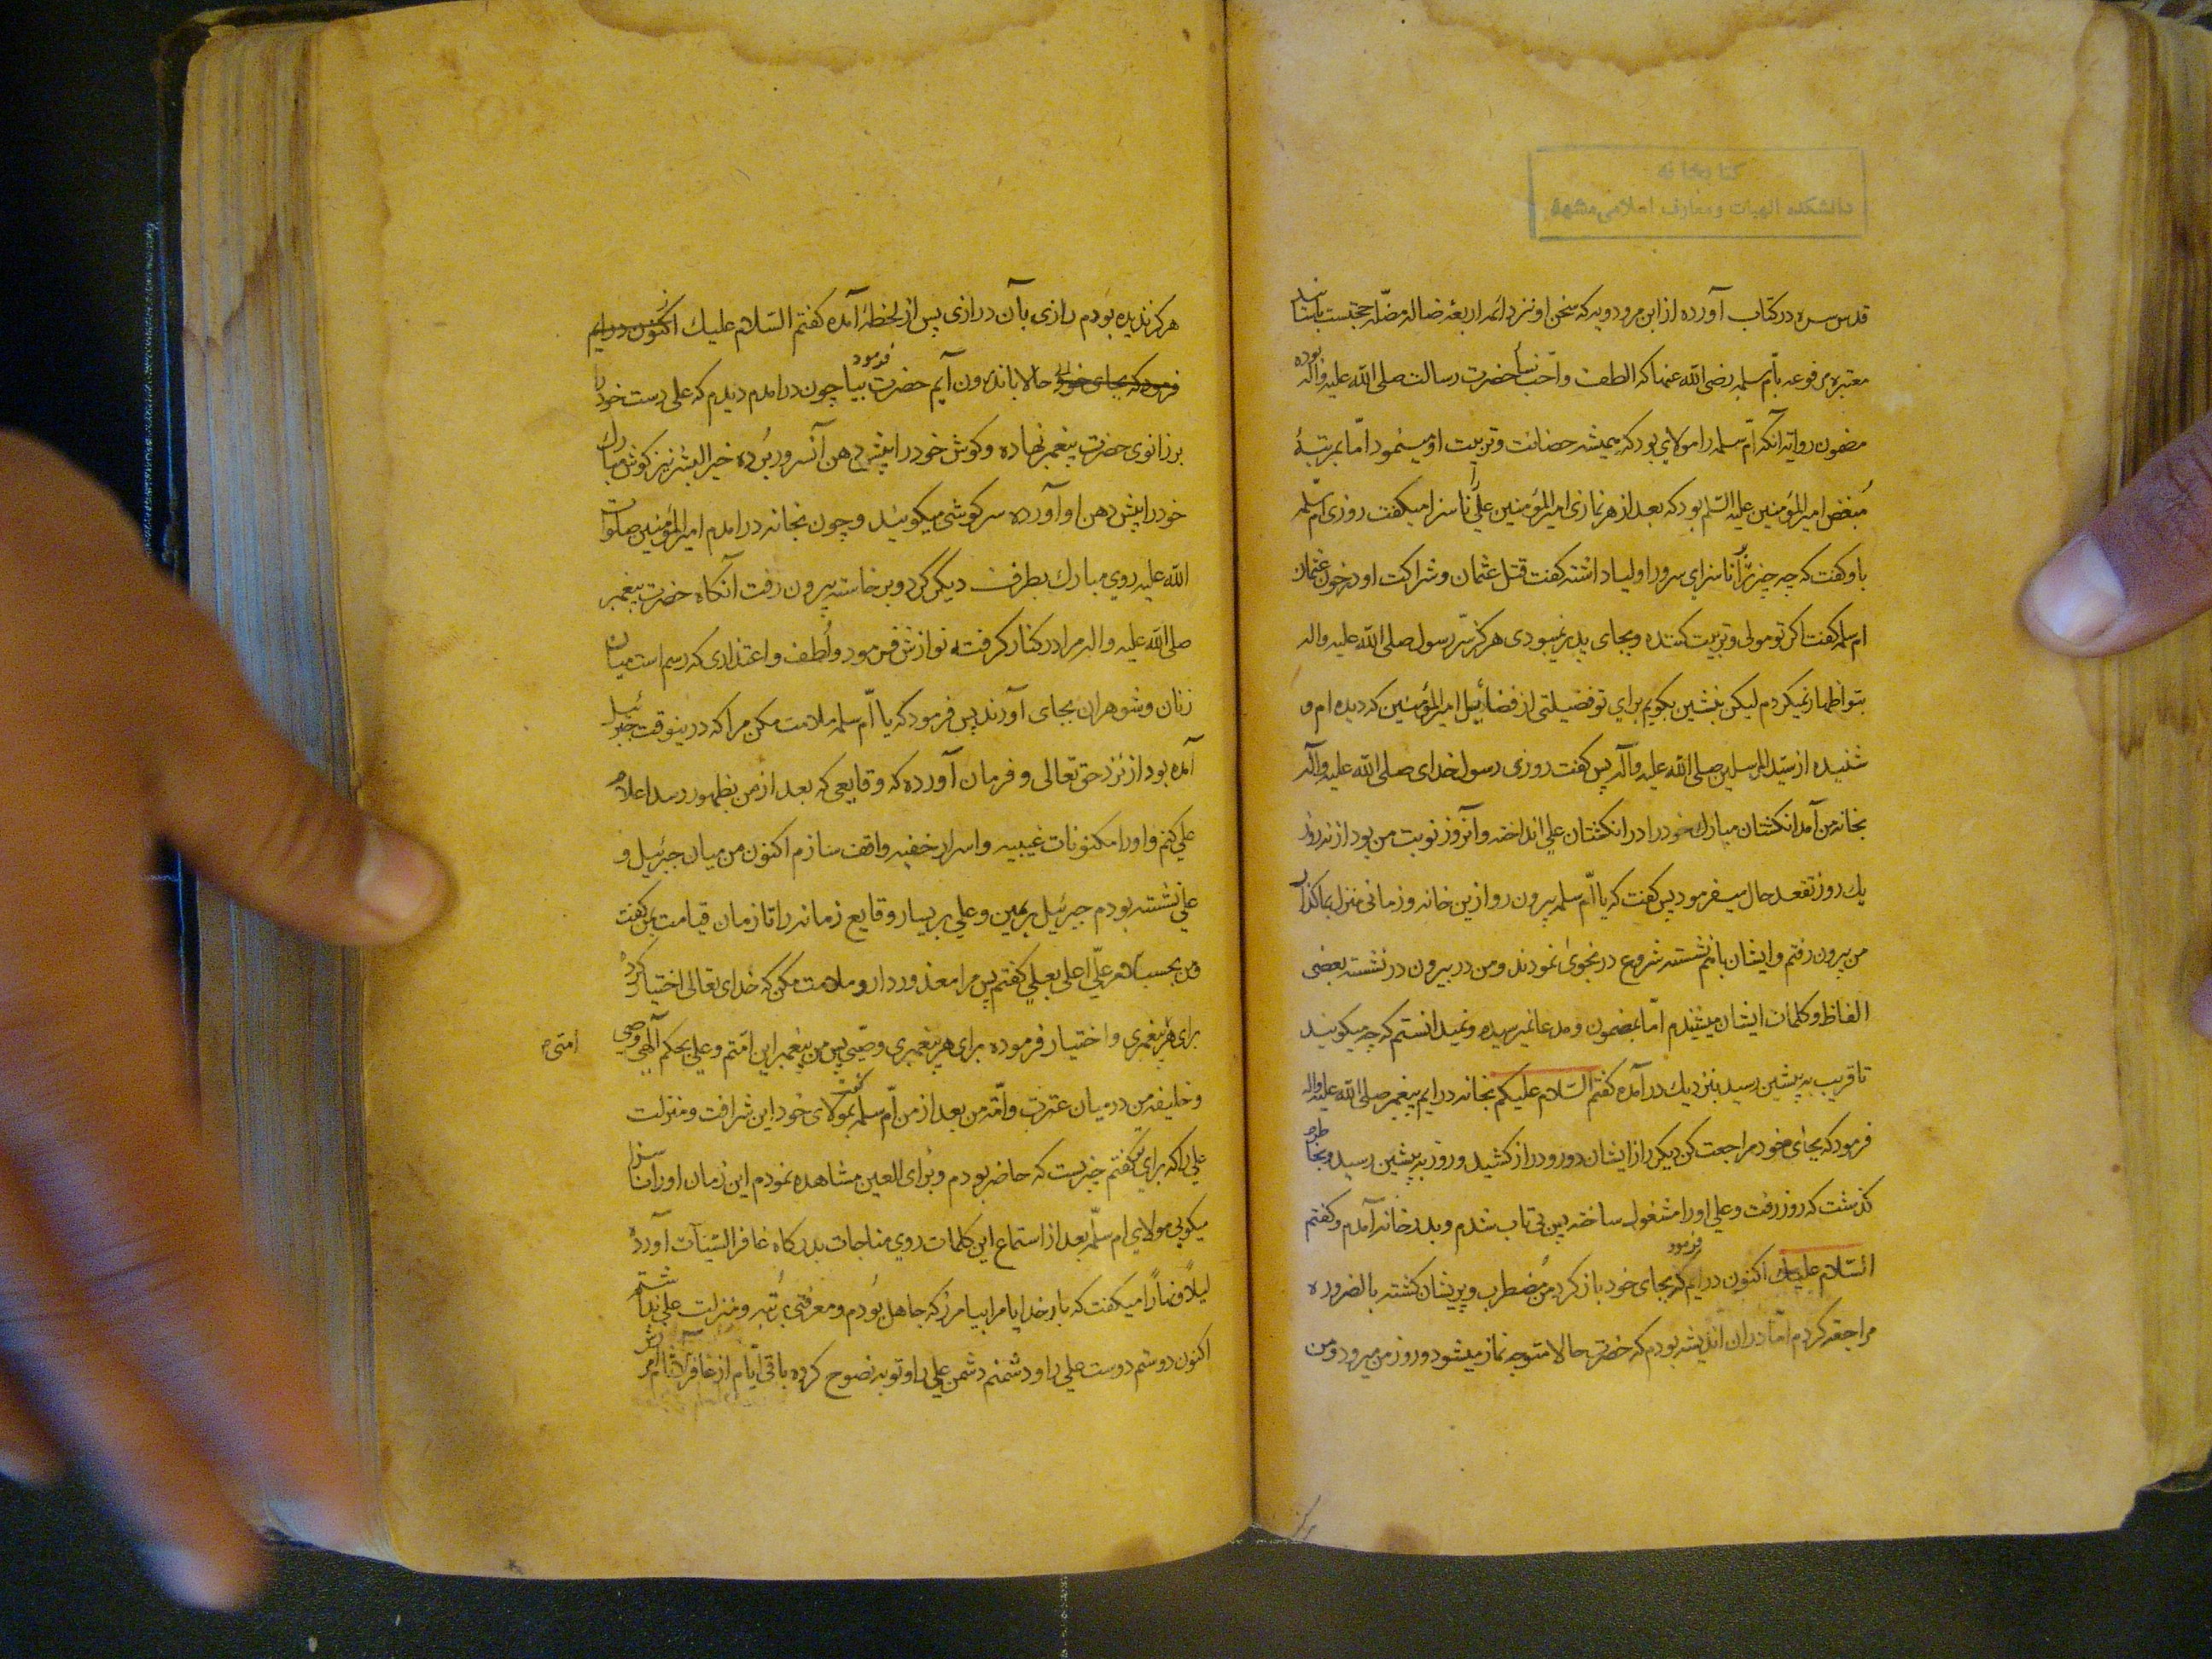 کتابخانه
دانشکده الهیات و معارف اسلامی مشهد
قدس سره در کتاب آورده از ابن مردویه که سخن او نزد ائمه اربعه ضاله مضله حجتست باسناد
معتبره مرفوعه بام سلمه رضی الله عنها که الطف و احب نسا حضرت رسالت صلی الله علیه واله بوده
مضمون روایه انکه ام سلمه را مولای بود که همیشه حضانت و تربیت او مینمود اما بمرتبهٔ
مبغض امیر المؤمنین علیه السلم بود که بعد از هر نمازی امیر المؤمنین علی را ناسزا میکفت روزی ام سلمه
باو کفت که چه چیز ترا بر ناسزای سرور اولیا داشته کفت قتل عثمان و شراکت او در خون عثمان
ام سلمه کفت اکر تو مولی و تربیت کننده و بجای پدر نمیبودی هرکز سّر رسول صلی الله علیه واله
بتو اظهار نمیکردم لیکن بنشین بکویم برای تو فضیلتی از فضائیل امیر المؤمنین که دیده ام و
شنیده از سید المرسلین صلی الله علیه وآله پس کفت روزی رسول خدای صلی الله علیه وآله
بخانه من آمد انکشتان مبارک خود را در انکشتان علی انداخته و آنروز نوبت من بود از نه روز
یک روز تفقد حال میفرمود پس کفت که یا ام سلمه بیرون رو ازین خانه و زمانی منزل بما کذار
من بیرون رفتم و ایشان باهم نشسته شروع در نجوی نمودند و من در بیرون در نشسته بعضی
الفاظ و کلمات ایشان میشنیدم اما بمضمون و مدعا نمیرسیده و نمیدانستم که چه میکویند
تا قریب به پیشین رسید بنزدیک در آمده کفتم السلام علیکم بخانه در ایم پیغمبر صلی الله علیه واله
فرمود که بجای خود مراجعت کن دیکر راز ایشان دور و دراز کشید و روز به پیشین رسید و بخاطرم
کذشت که روز رفت و علی او را مشغول ساخته پس بی تاب شدم و بدر خانه آمدم و کفتم
السلام علیک اکنون در ایم فرمود که بجای خود باز کرد من مضطرب و پریشان کشته بالضروره
مراجعه کردم اما در ان اندیشه بودم که حضرت حالا متوجه نماز میشود و روز من میرود و من
هرکز ندیده بودم رازی بآن درازی پس از لحظهٔ آمده کفتم السلام علیک اکنون درایم
فرمود که بجای خود حالا باندرون آیم حضرت فرمود بیا چون درامدم دیدم که علی دست خود را
بر زانوی حضرت پیغمبر نهاده و کوش خود را پیش دهن آنسرور برده خیر البشر نیز کوش مبارک
خود را پیش دهن او آورده سرکوشی میکویند و چون بخانه درامدم امیر المؤمنین صلوات
الله علیه روی مبارک بطرف دیکر کرد و برخاسته بیرون رفت آنکاه حضرت پیغمبر
صلی الله علیه واله مرا در کنار کرفته نوازش فرمود و لطف و اعتذاری که رسم است میان
زنان و شوهران بجای آورند پس فرمود که یا ام سلمه ملامت مکن مرا که درینوقت جبرئیل
آمده بود از نزد حق تعالی و فرمان آورده که وقایعی که بعد از من بظهور رسد اعلام
علی کنم و او را مکنونات غیبیه و اسرار خفیه واقف سازم اکنون من میان جبرئیل و
علی نشسته بودم جبرئیل بر یمین و علی بر یسار وقایع زمانه را تا زمان قیامت بمن کفت
و من بحسب امر علی اعلی بعلی کفتم پس مرا معذور دار و ملامت مکن که خدای تعالی اختیار کرده
برای هر پیغمبری و اختیار فرموده برای هر پیغمبری وصیی پس من پیغمبر این امتم و علی بحکم آلهی وصی
امتی
و خلیفه من در میان عترت و امّه من بعد از من ام سلمه کفت بمولای خود این شرافت و منزلت
علی را که برای تو کفتم چیزیست که حاضر بودم و برای العین مشاهده نمودم این زمان او را ناسزا
میکویی مولای ام سلمه بعد از استماع این کلمات روی مناجات بدرکاه غافر السیئات آورده
لیلاً و نهاراً میکفت که بار خدایا مرا بیامرز که جاهل بودم و معرفتی برتبه و منزلت علی نداشتم
اکنون دوستم دوست علی را و دشمنم دشمن علی را و توبه نصوح کرده باقی ایام از غافر